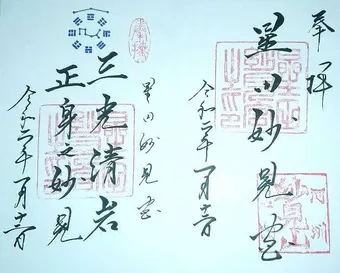 奉拝
星田妙見宮
令和二年一月十二日
星田妙見宮
三光清岩
正身之妙見
令和二年一月十二日